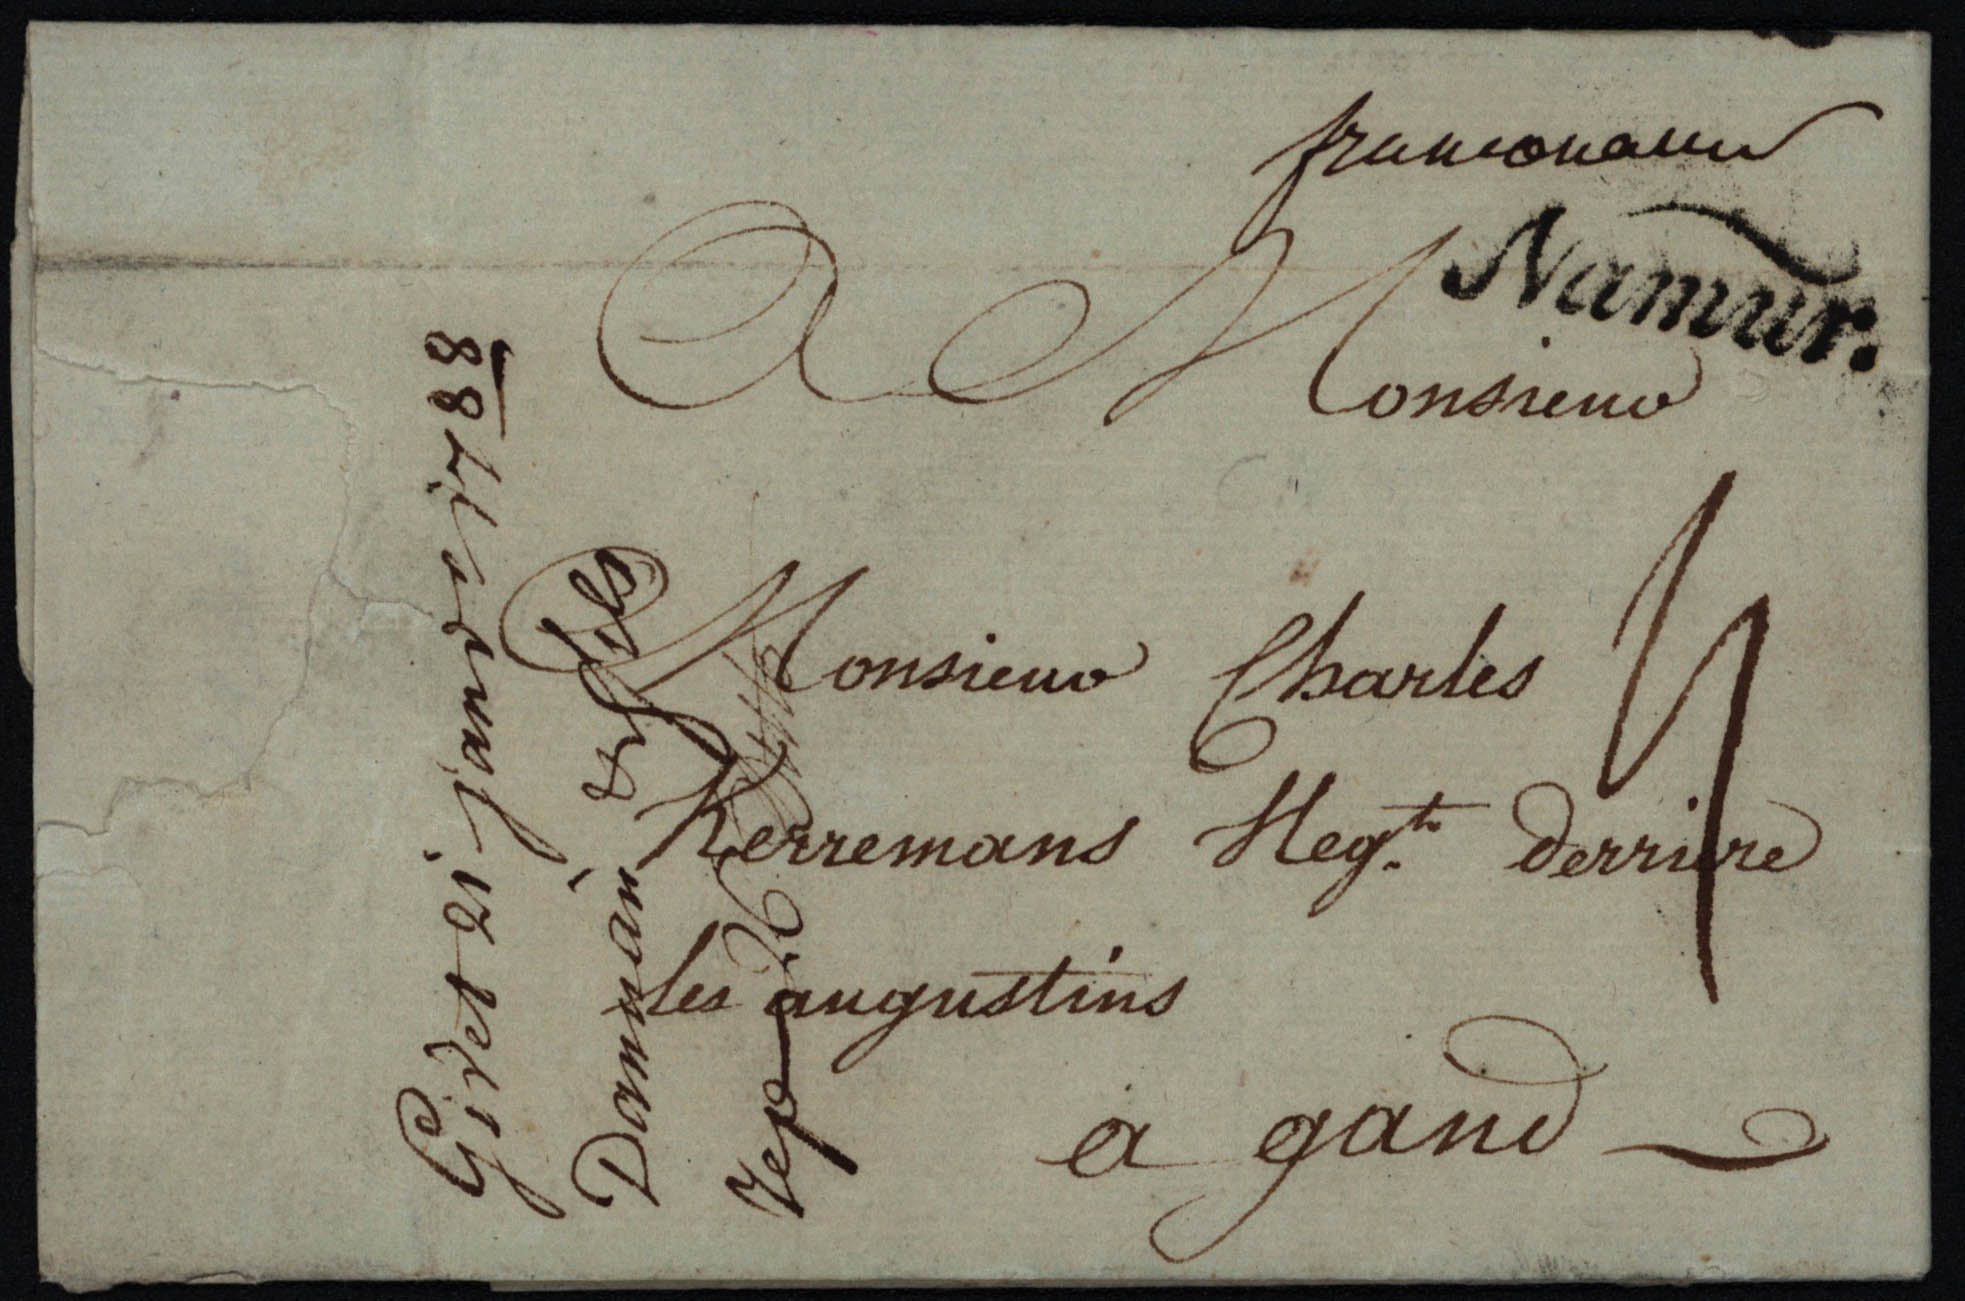 franconamur
Namur.
A Monsieur
Monsieur Charles
Kerremans Negt. derriere
les augustins
a gand
Givet 21 janvier 1788
Damman & fils
Rep